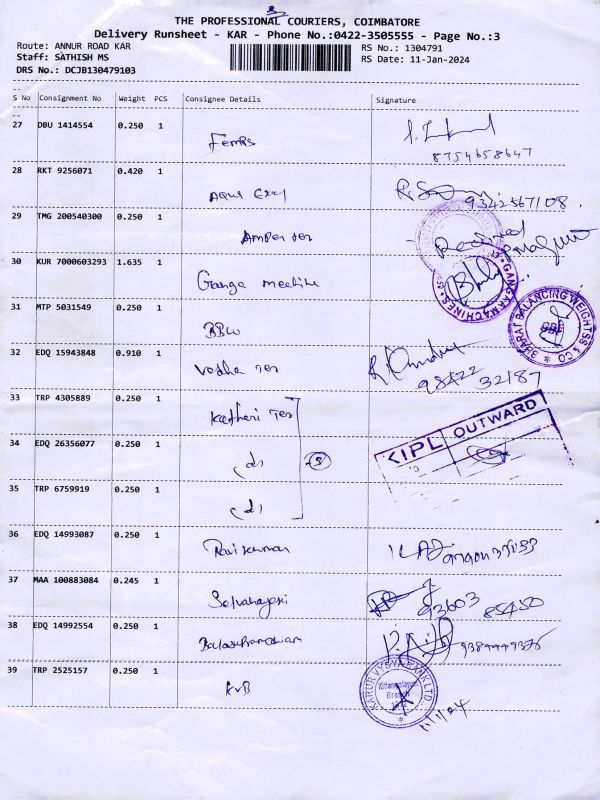 3
THE PROFESSIONAL COURIERS, COIMBATORE
Delivery Runsheet - KAR - Phone No.:0422-3505555 - Page No.:3
Route: ANNUR ROAD KAR RS No.: 1304791
Staff: SATHISH MS RS Date: 11-Jan-2024
DRS No.: DCJB130479103
S No Consignment No Weight PCS Consignee Details Signature
27 DBU 1414554 0.250 1
Femrs
8754658647
28 RKT 9256071 0.420 1
9342567108.
29 TMG 200540300 0.250 1
Received
30 KUR 7000603293 1.635 1
Ganga
GANGA MACHINES
31 MTP 5031549 0.250 1
BBW
BHARAT BALANCING WEIGHTSS & CO
BBE
32 EDQ 15943848 0.910 1
Vodha Tex
98422 32187
33 TRP 4305889 0.250 1
Katheri Tex
KIPL OUTWARD
34 EDQ 26356077 0.250 1
(d)
3
35 TRP 6759919 0.250 1
(d)
36 EDQ 14993087 0.250 1
Ravikumar
37 MAA 100883084 0.245 1
Selvanayaki
93603 85450
38 EDQ 14992554 0.250 1
Balasubramaniam
39 TRP 2525157 0.250 1
KVB
KARUR VYSYA BANK LTD.
Branch
11/1/24